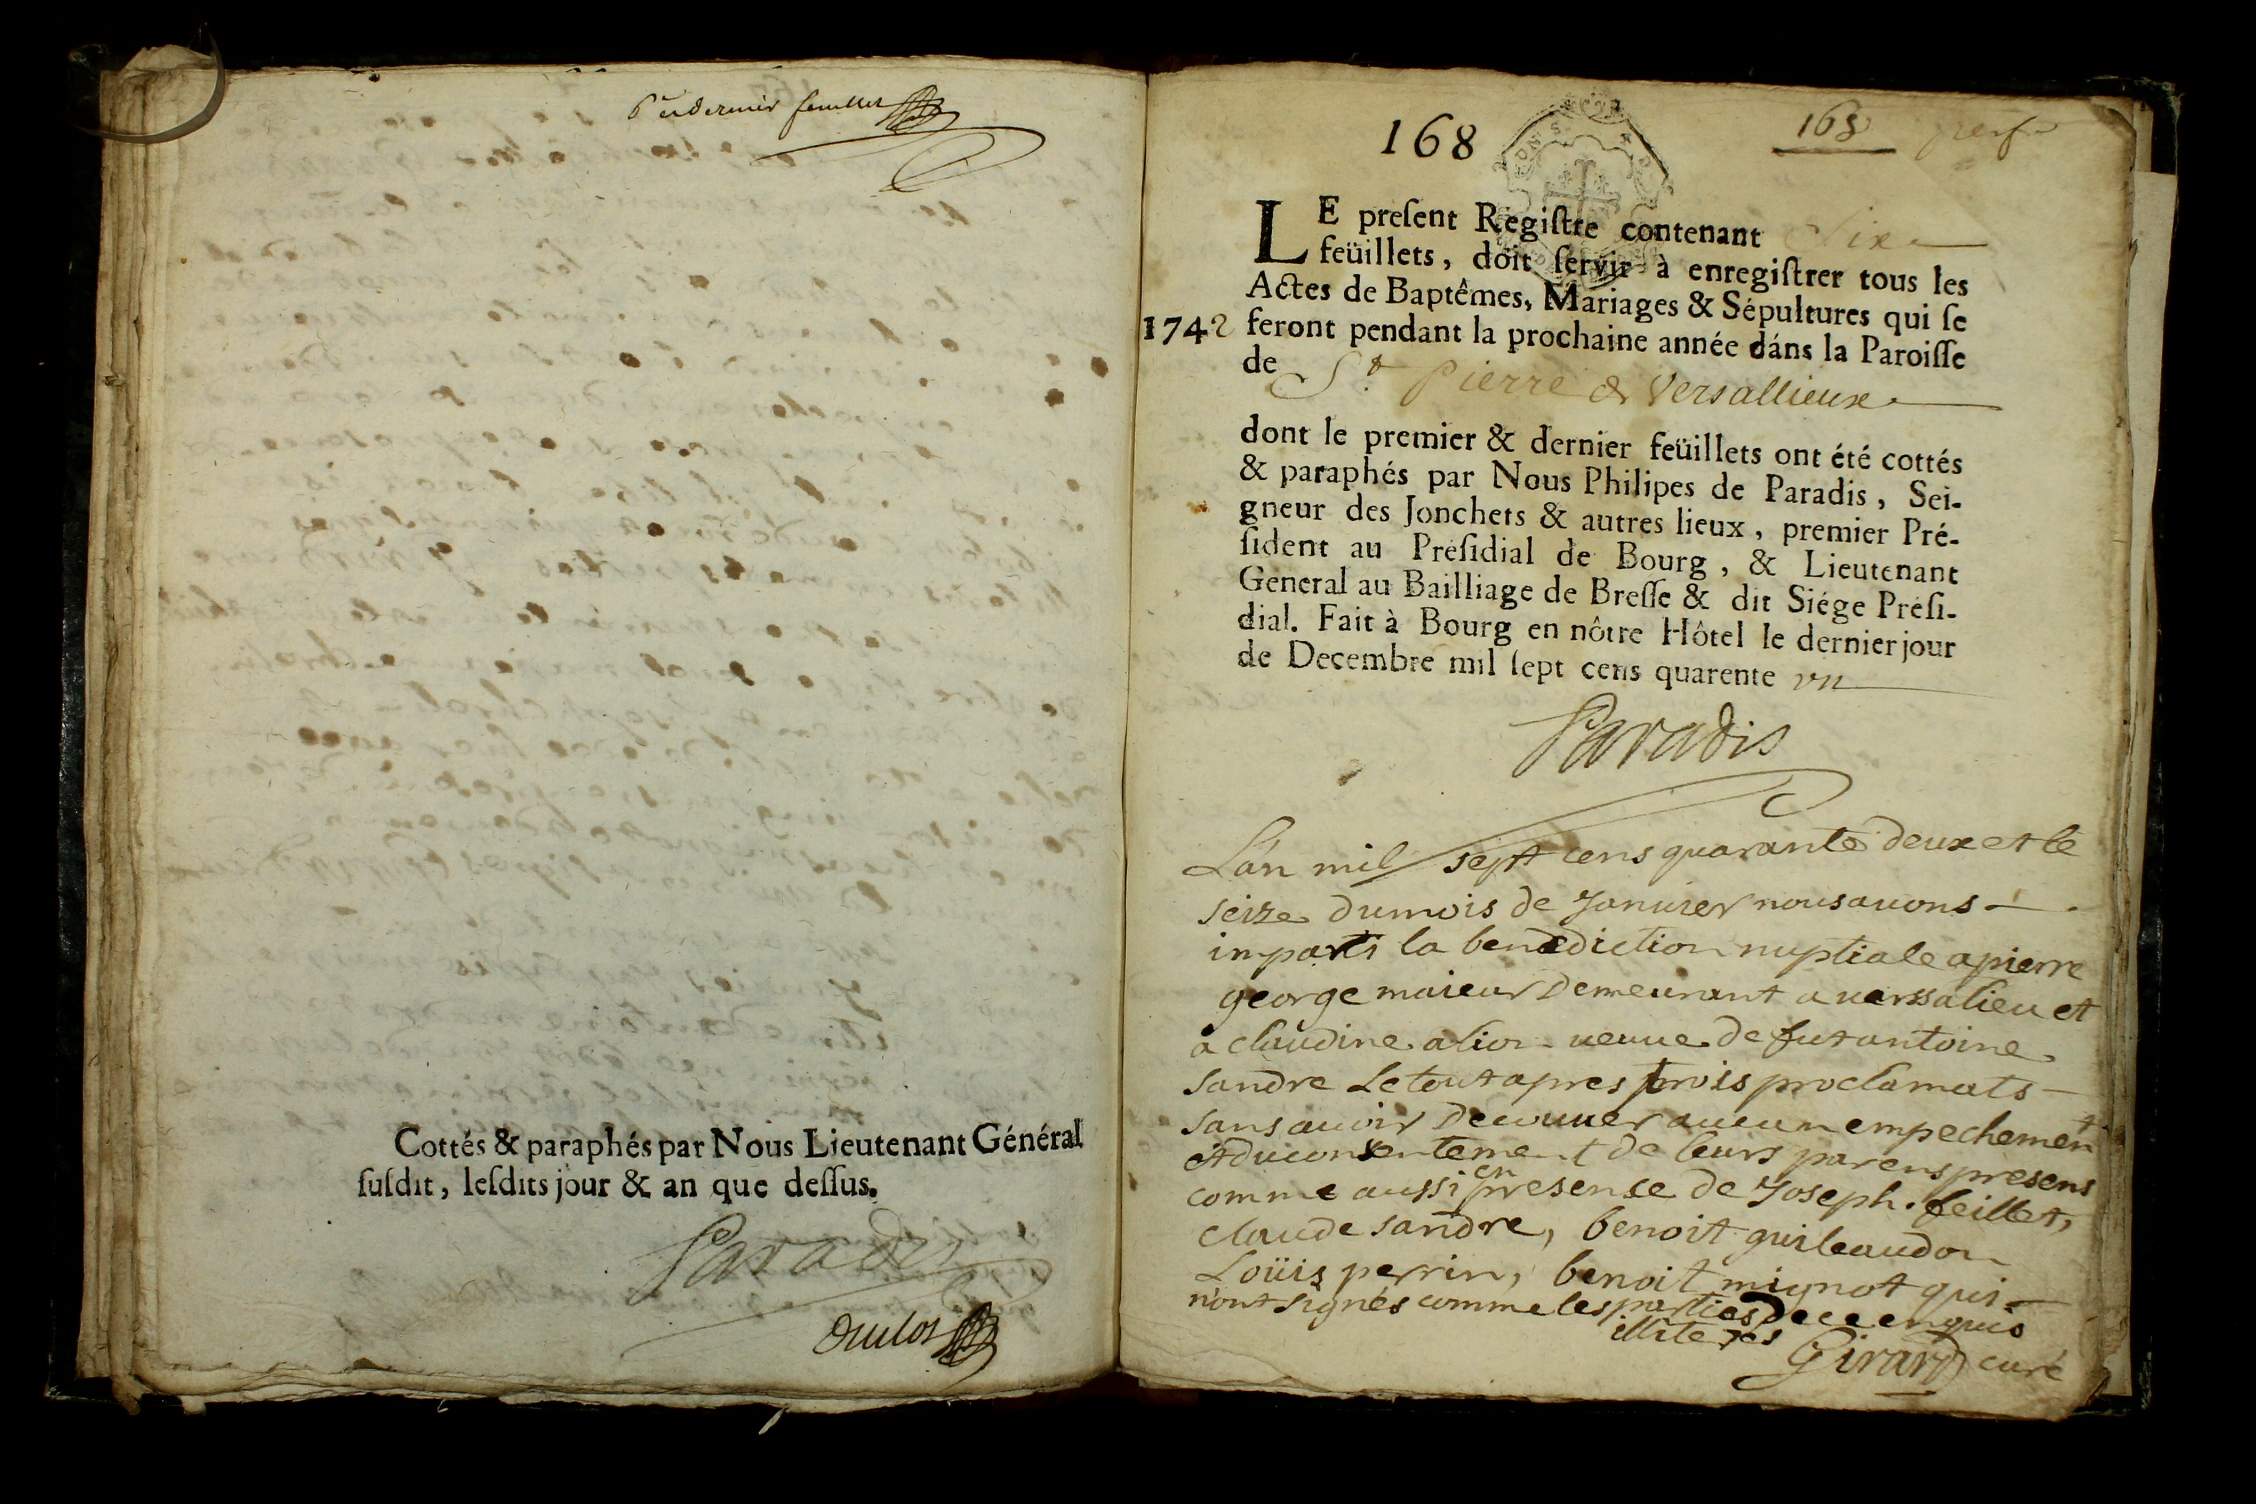 6e et dernier feuillet
Cottés & paraphés par Nous Lieutenant Général
suſdit, leſdits jour & an que deſſus.
Paradis
168
168
LE preſent Regiſtre contenant Six
feüillets, doit ſervir à enregiſtrer tous les
Actes de Baptêmes, Mariages & Sépultures qui ſe
1742 feront pendant la prochaine année dáns la Paroiſſe
de St Pierre de Versallieux
dont le premier & dernier feüillets ont été cottés
& paraphés par Nous Philipes de Paradis, Sei-
gneur des Jonchets & autres lieux, premier Pré-
ſident au Préſidial de Bourg, & Lieutenant
General au Bailliage de Breſſe & dit Siége Préſi-
dial. Fait à Bourg en nôtre Hôtel le dernier jour
de Decembre mil ſept cens quarente vn
Paradis
L'an mil sept cens quarante deux et le
seize du mois de Janvier nous auons
imparti la benediction nuptiale a pierre
george maieur Demeurant a versalieu et
a claudine alion veuue de fut antoine
sandre Le tout apres trois proclamats
sans auoir Decouuer aucun empechement
et du consentement de leurs parens presens
comme aussi en presense de Joseph feillet,
claude sandre, benoit guileaudon
Loüis perrin, benoit mignot qui
n'ont signés comme les parties De ce enquis
illiteres Girard curé